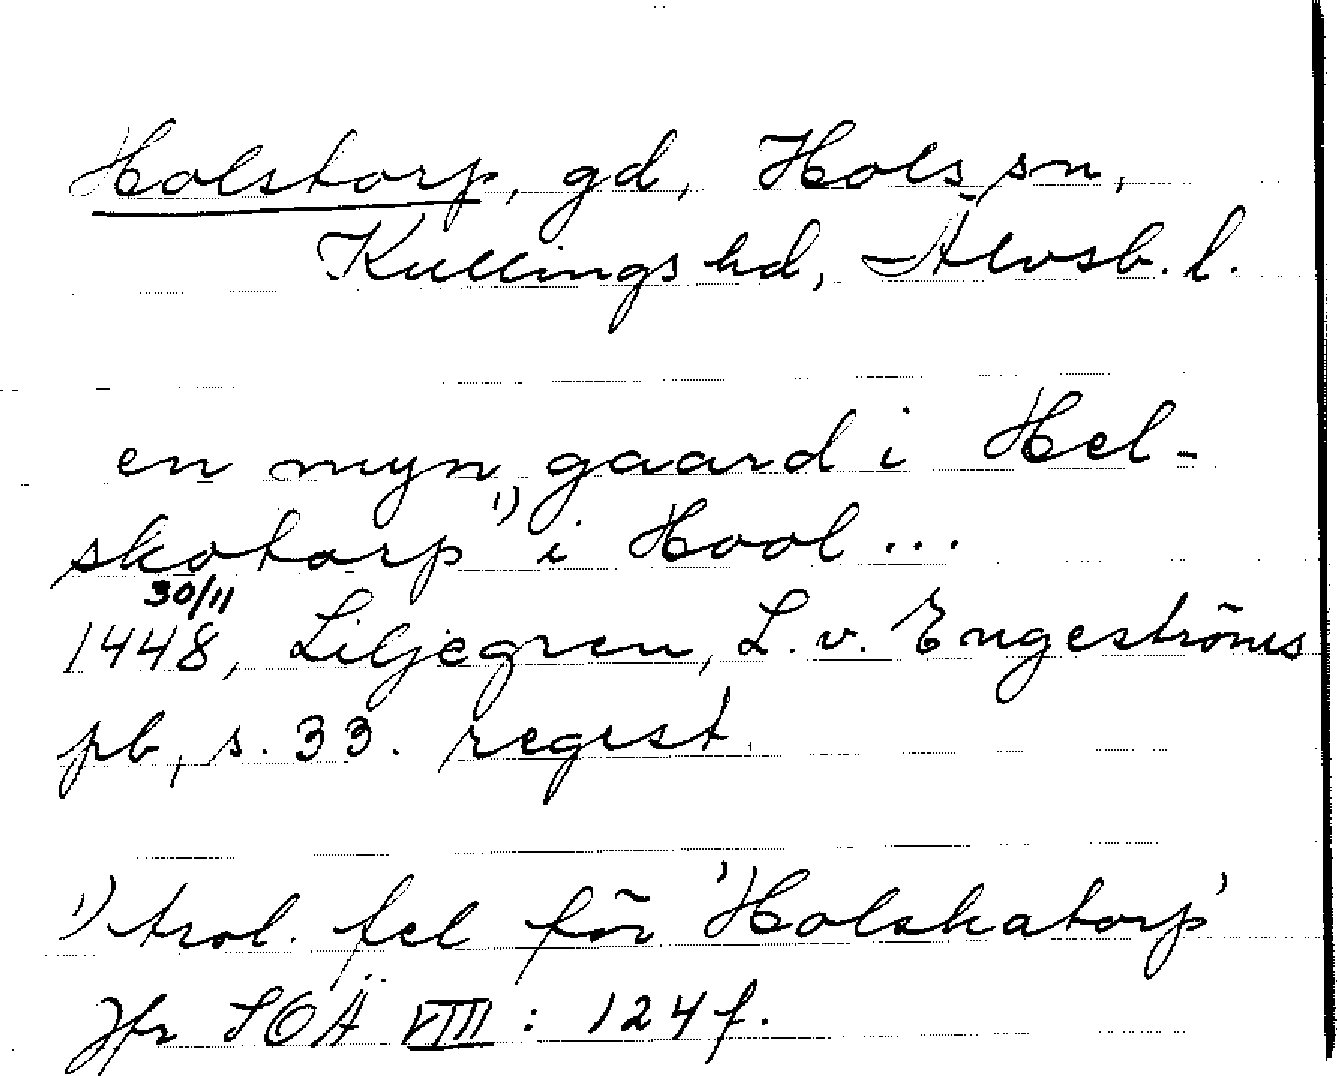 Holstorp, gd, Hols sn,
Kullings hd, Älvsb. l.
en myn gaard i Hel-
skotorp¹⁾ i Hool ...
30/11
1448, Liljegren, L. v. Engeströms
pb, s. 33. regest.
¹⁾ trol. fel för 'Holskatorp'
Jfr SOÄ VIII : 124 f.